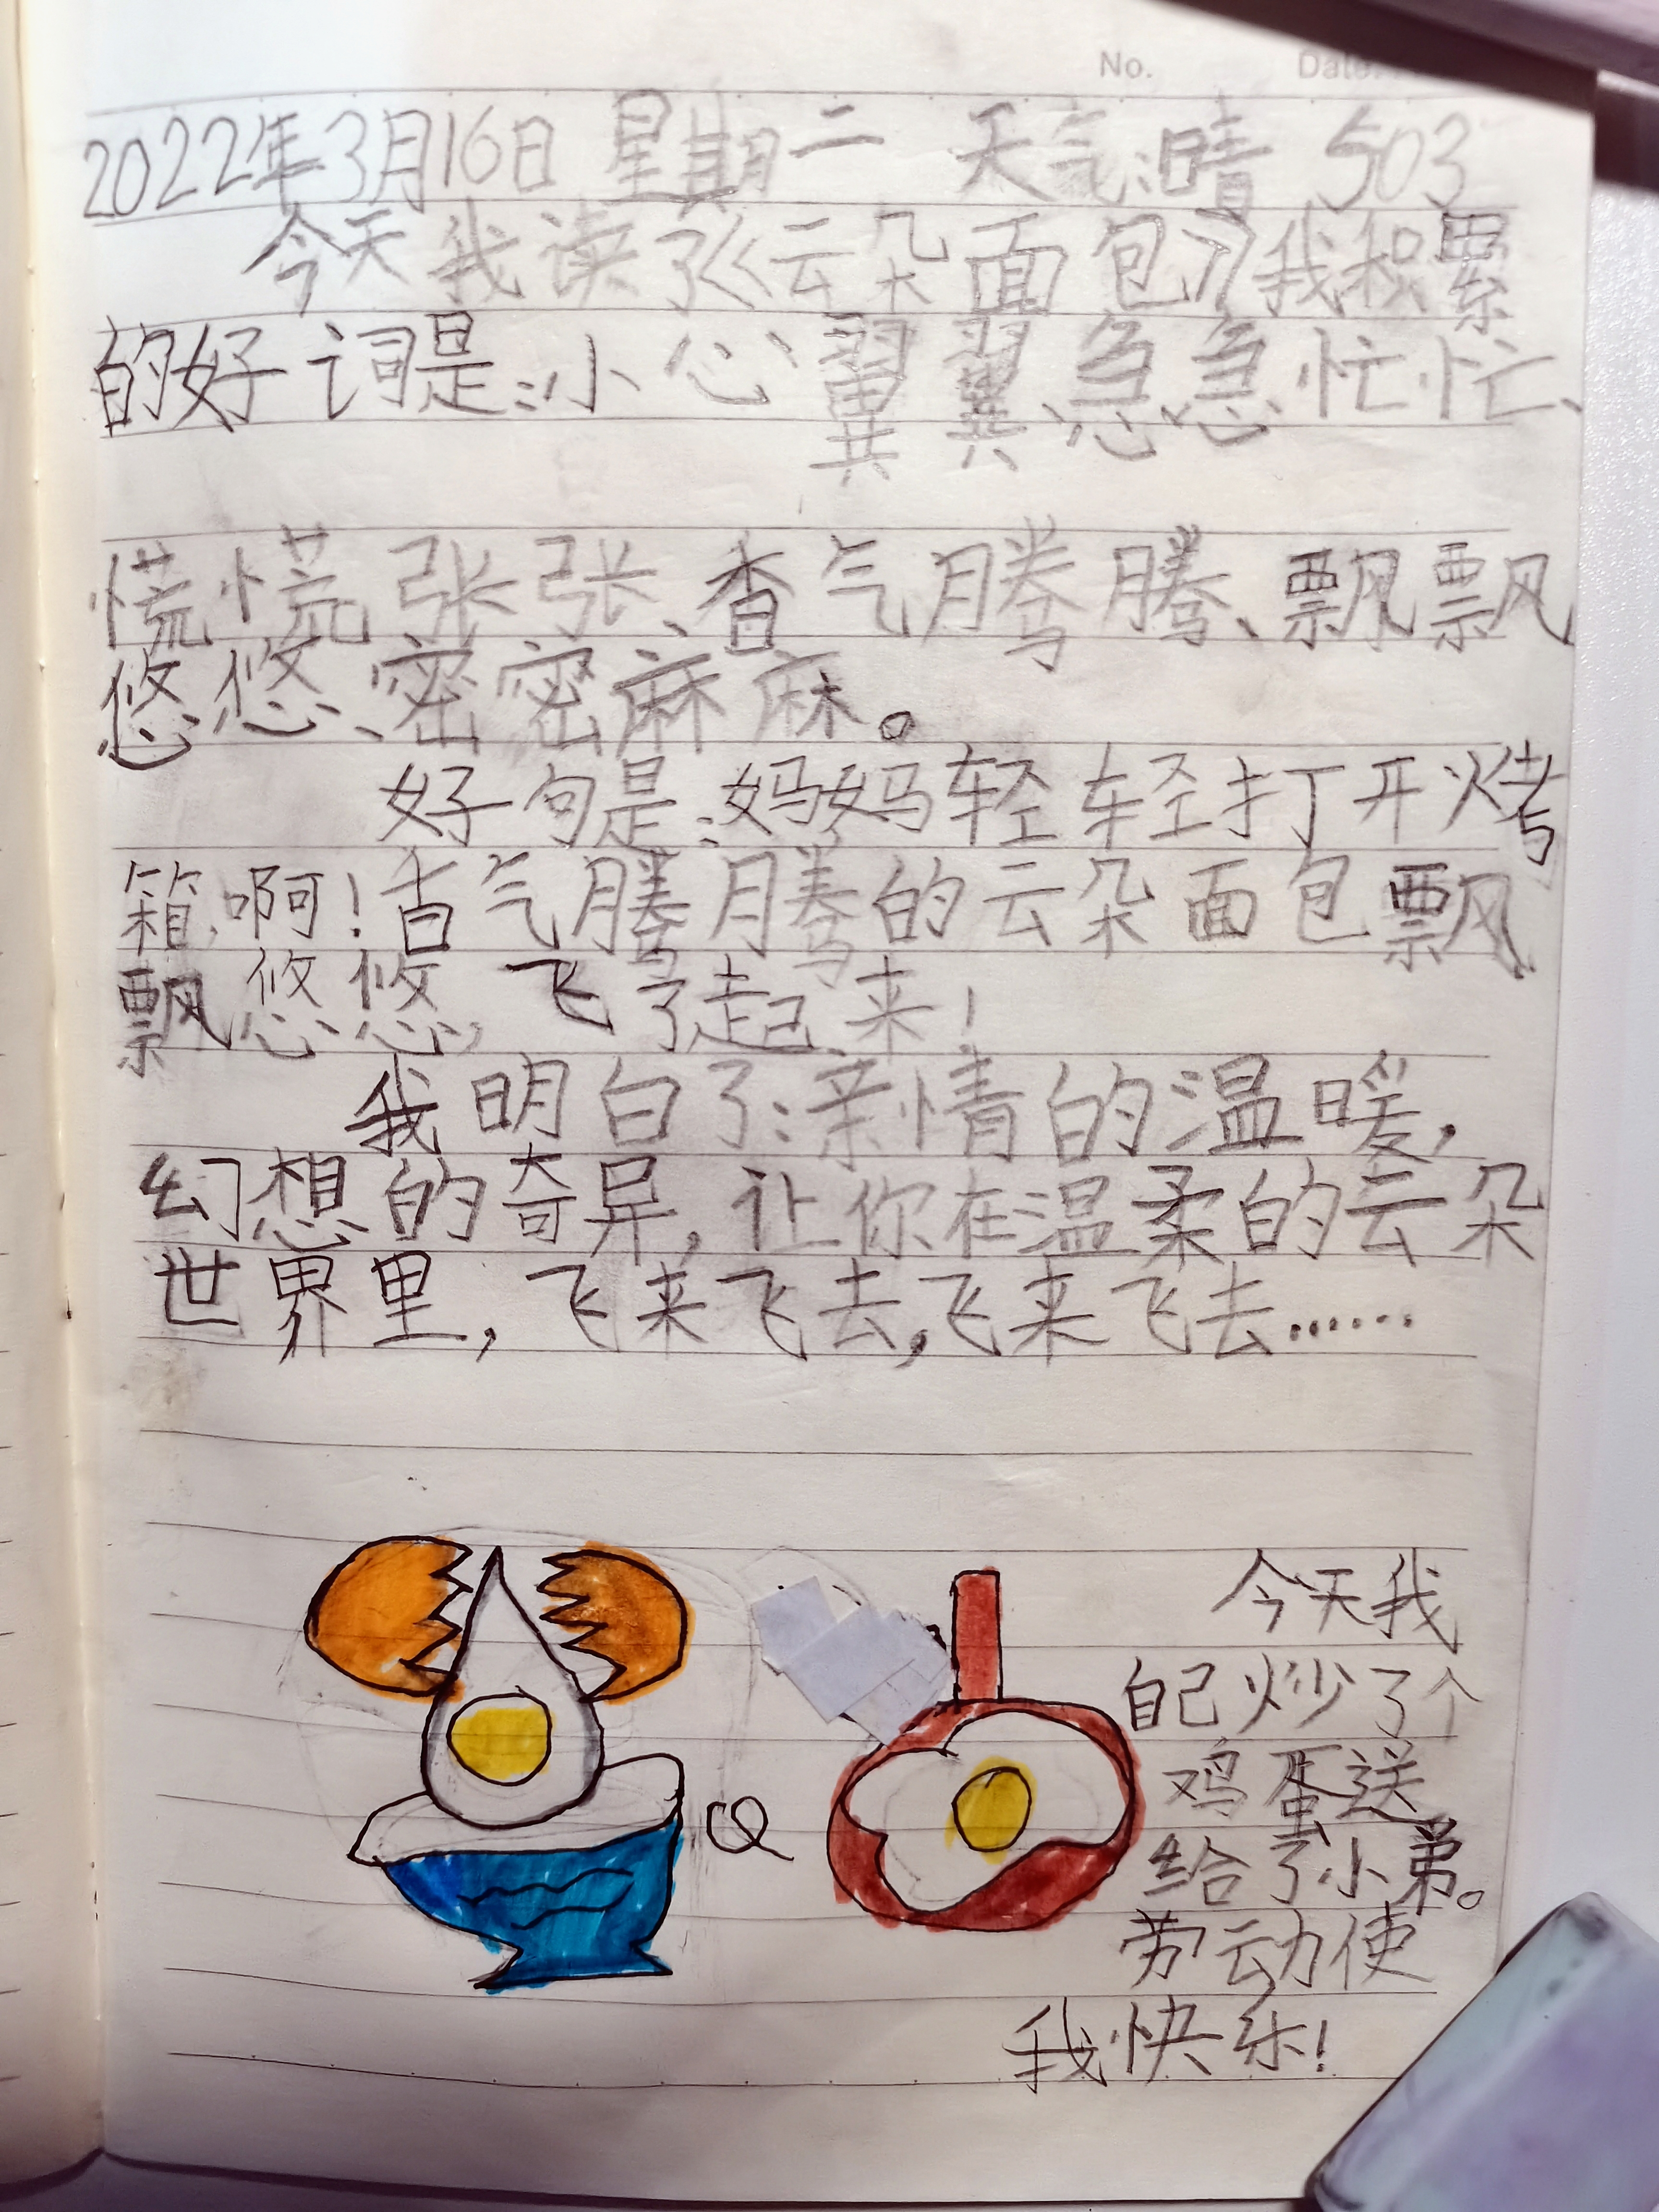 No. Date.
2022年3月16日 星期二 天气:晴 503
今天我读了《云朵面包》我积累
的好词是:小心翼翼、急急忙忙、
慌慌张张、香气腾腾、飘飘
悠悠、密密麻麻。
好句是:妈妈轻轻打开烤
箱,啊!香气腾腾的云朵面包飘
飘悠悠,飞了起来!
我明白了:亲情的温暖,
幻想的奇异,让你在温柔的云朵
世界里,飞来飞去,飞来飞去……
今天我
自己炒了个
鸡蛋送
给了小弟。
劳动使
我快乐!